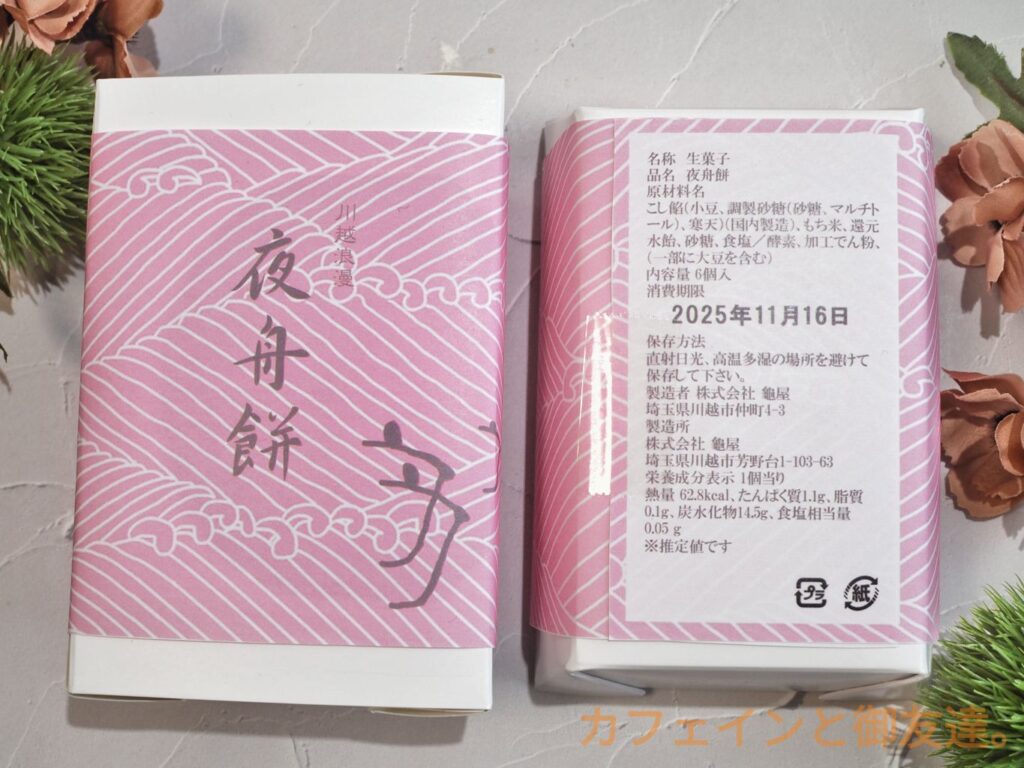 川越浪漫
夜舟餅
名称 生菓子
品名 夜舟餅
原材料名
こし餡(小豆、調製砂糖(砂糖、マルチト
ール)、寒天)(国内製造)、もち米、還元
水飴、砂糖、食塩/酵素、加工でん粉、
(一部に大豆を含む)
内容量 6個入
消費期限
2025年11月16日
保存方法
直射日光、高温多湿の場所を避けて
保存して下さい。
製造者 株式会社 龜屋
埼玉県川越市仲町4-3
製造所
株式会社 龜屋
埼玉県川越市芳野台1-103-63
栄養成分表示 1個当り
熱量 62.8kcal、たんぱく質1.1g、脂質
0.1g、炭水化物14.5g、食塩相当量
0.05 g
※推定値です
プラ
紙
カフェインと御友達。